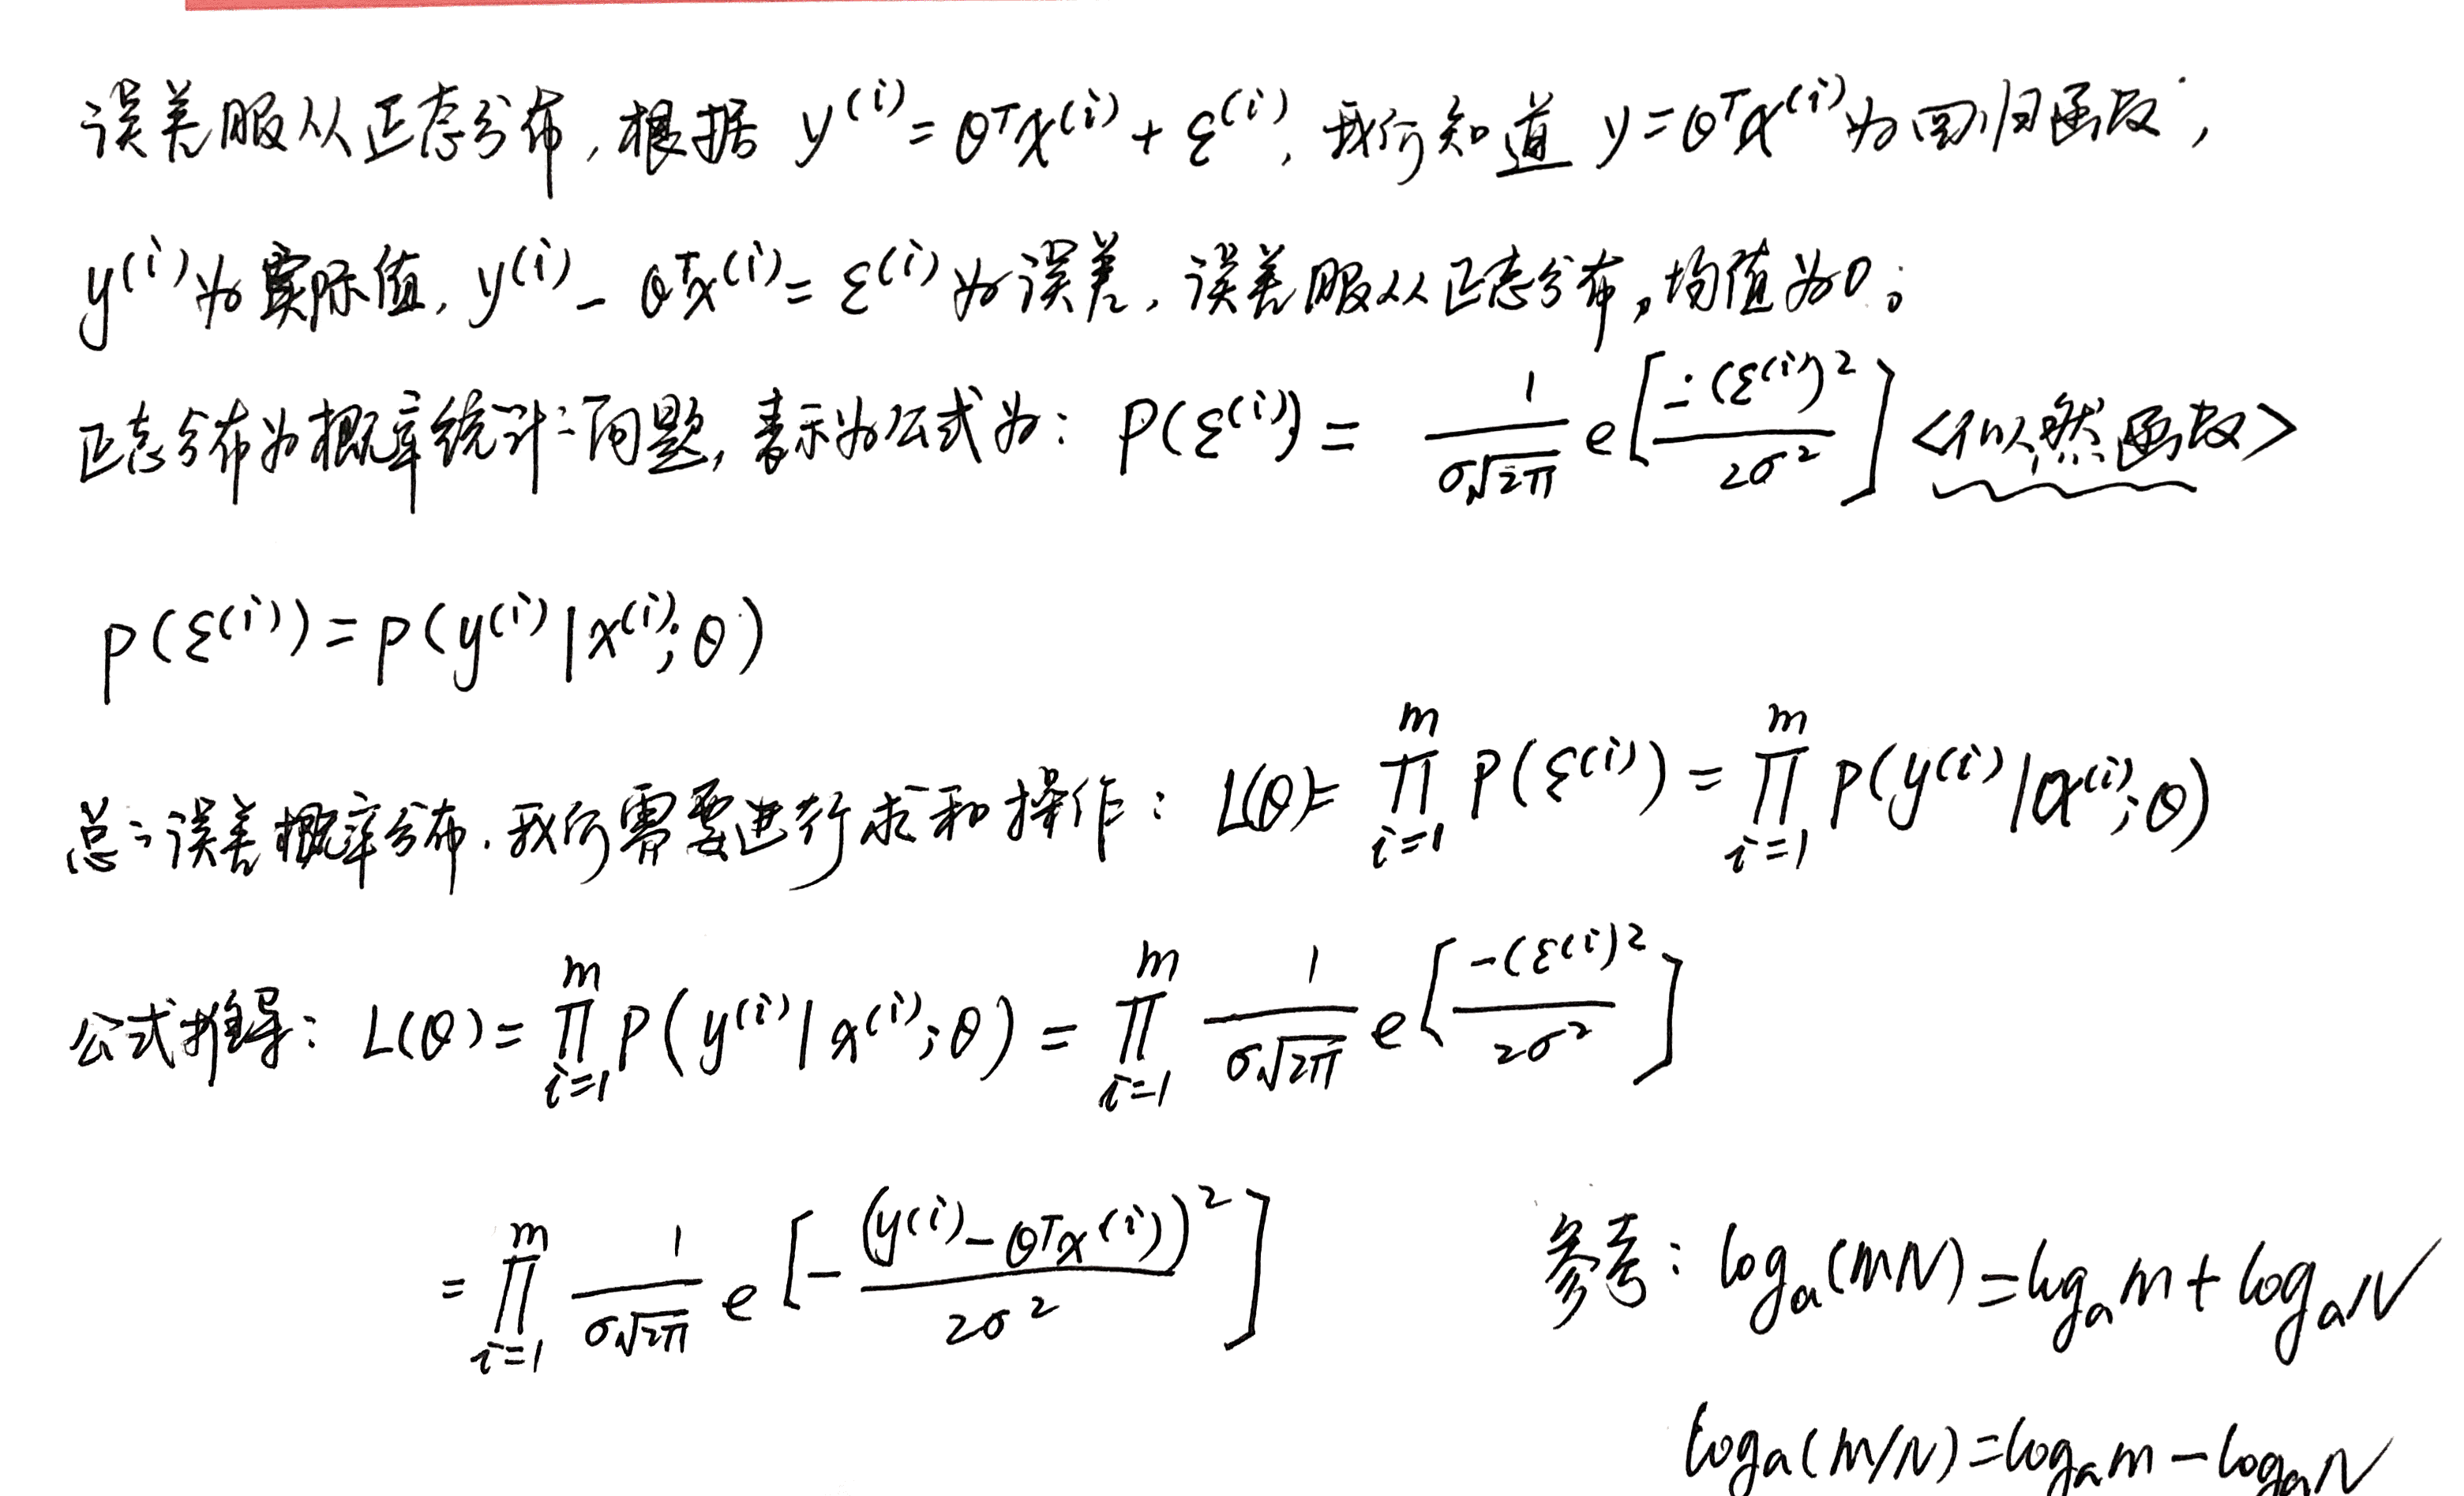 误差服从正态分布,根据 y^(i) = θ^T x^(i) + ε^(i), 我们知道 y = θ^T x^(i) 为回归函数,
y^(i) 为实际值, y^(i) - θ^T x^(i) = ε^(i) 为误差, 误差服从正态分布,均值为0;
正态分布为概率统计的问题, 表示为公式为: P(ε^(i)) = 1/(σ√2π) e[-(ε^(i))^2/2σ^2] <似然函数>
P(ε^(i)) = P(y^(i) | x^(i); θ)
总的误差概率分布, 我们需要进行求和操作: L(θ) = ∏_{i=1}^{m} P(ε^(i)) = ∏_{i=1}^{m} P(y^(i) | x^(i); θ)
公式推导: L(θ) = ∏_{i=1}^{m} P(y^(i) | x^(i); θ) = ∏_{i=1}^{m} 1/(σ√2π) e[-(ε^(i))^2/2σ^2]
= ∏_{i=1}^{m} 1/(σ√2π) e[-(y^(i) - θ^T x^(i))^2/2σ^2] 参考: log_a(MN) = log_a M + log_a N
log_a(M/N) = log_a M - log_a N